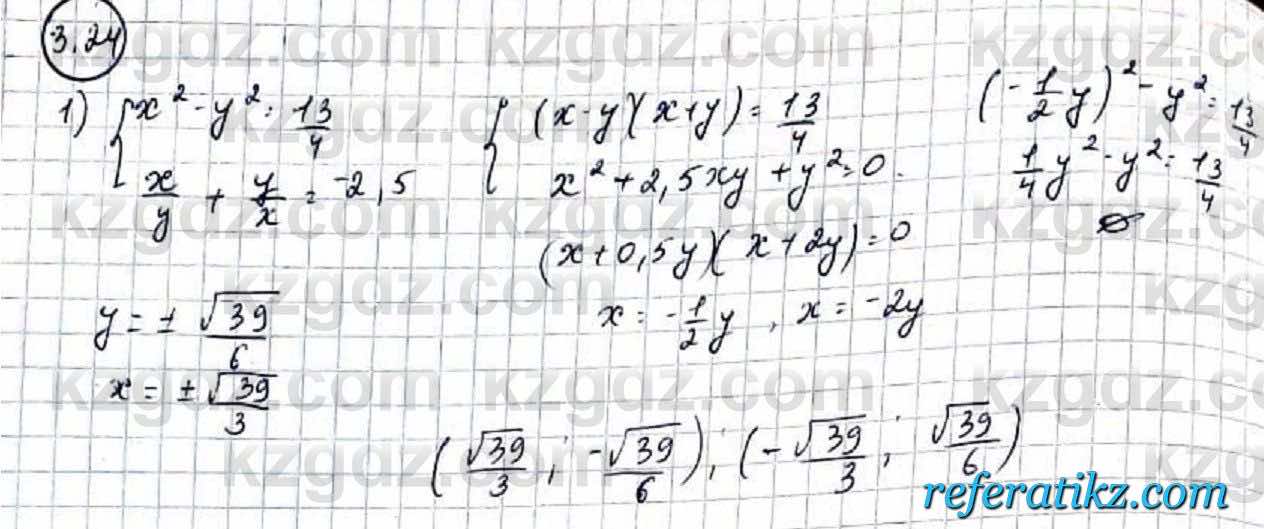 3.24
1) { x² - y² = 13/4
x/y + y/x = -2,5
{ (x-y)(x+y) = 13/4
x² + 2,5xy + y² = 0.
(x+0,5y)(x+2y) = 0
x = -1/2 y , x = -2y
(-1/2 y)² - y² = 13/4
1/4 y² - y² = 13/4
∅
y = ± √39/6
x = ± √39/3
(√39/3 ; -√39/6); (-√39/3 ; √39/6)
kzgdz.com
referatikz.com